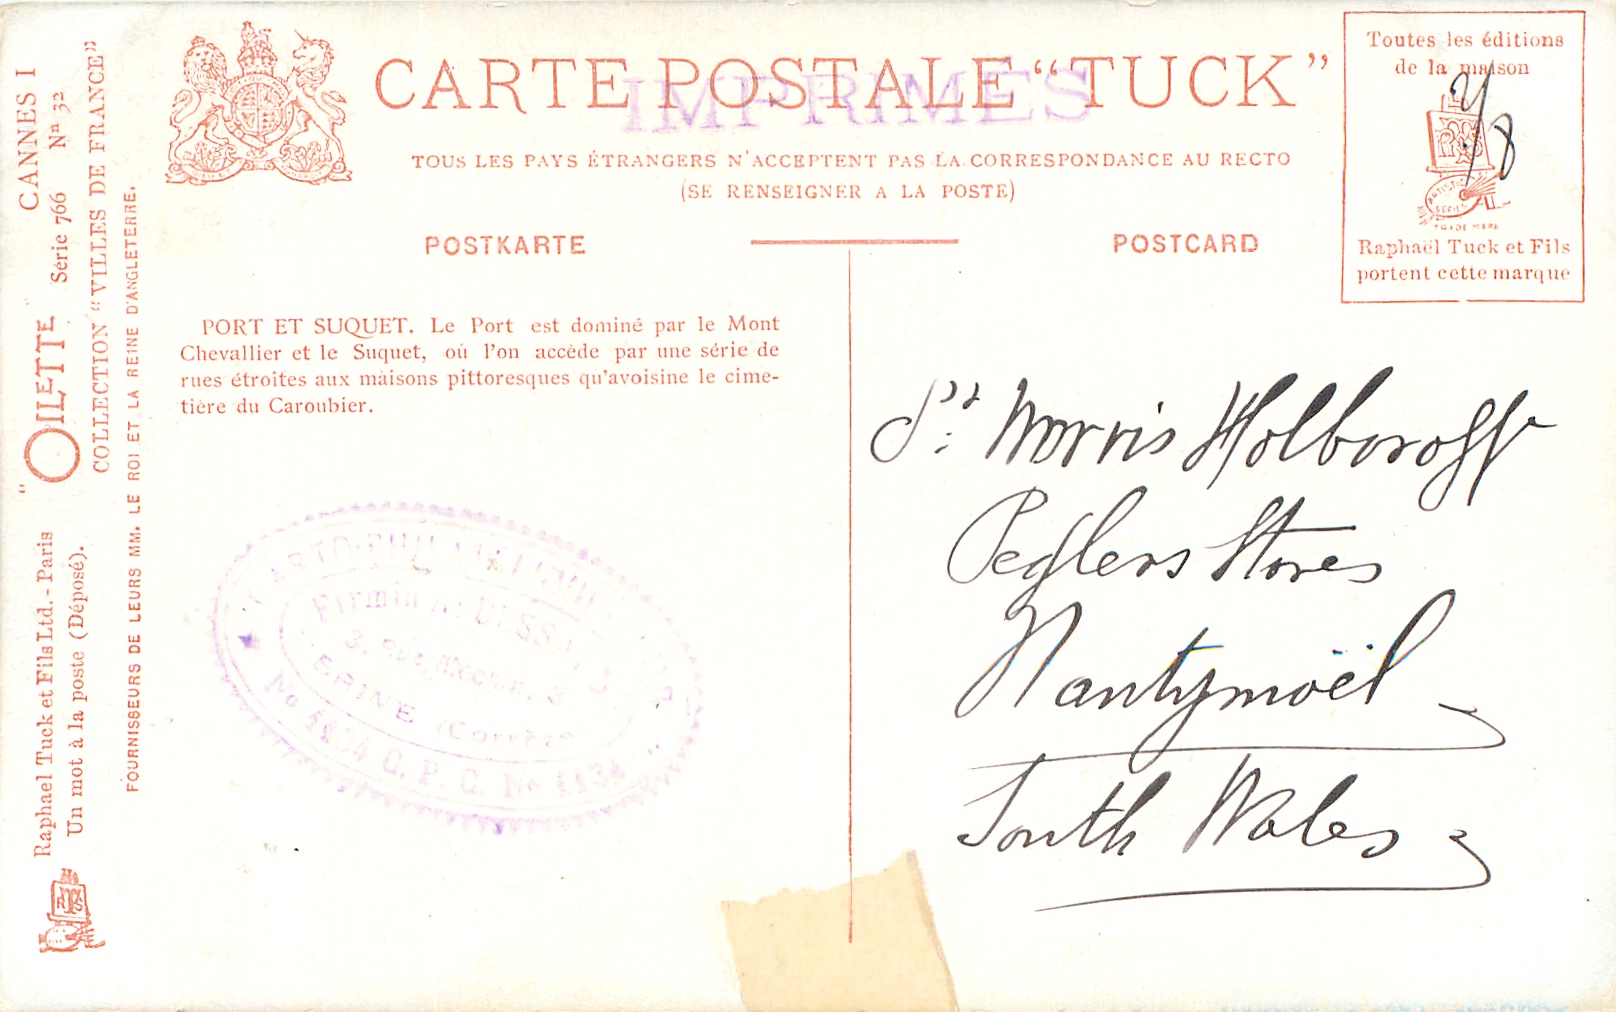 CARTE POSTALE “TUCK”
IMPRIMÉS
TOUS LES PAYS ÉTRANGERS N'ACCEPTENT PAS LA CORRESPONDANCE AU RECTO
(SE RENSEIGNER A LA POSTE)
POSTKARTE
POSTCARD
Toutes les éditions
de la maison
ARTISTIC
SERIES
TRADE MARK
Raphaël Tuck et Fils
portent cette marque
PORT ET SUQUET. Le Port est dominé par le Mont
Chevallier et le Suquet, où l'on accède par une série de
rues étroites aux maisons pittoresques qu'avoisine le cime-
tière du Caroubier.
CANNES I
“OILETTE Série 766 No 32
COLLECTION “VILLES DE FRANCE”
FOURNISSEURS DE LEURS MM. LE ROI ET LA REINE D'ANGLETERRE.
Raphael Tuck et Fils Ltd. - Paris
Un mot à la poste (Déposé).
Firmin
3, Rue
BRIVE (Corrèze)
No 4434 C. P. C. No 4434
Morris Holboroff
Peglers Stores
Nantymöel
South Wales